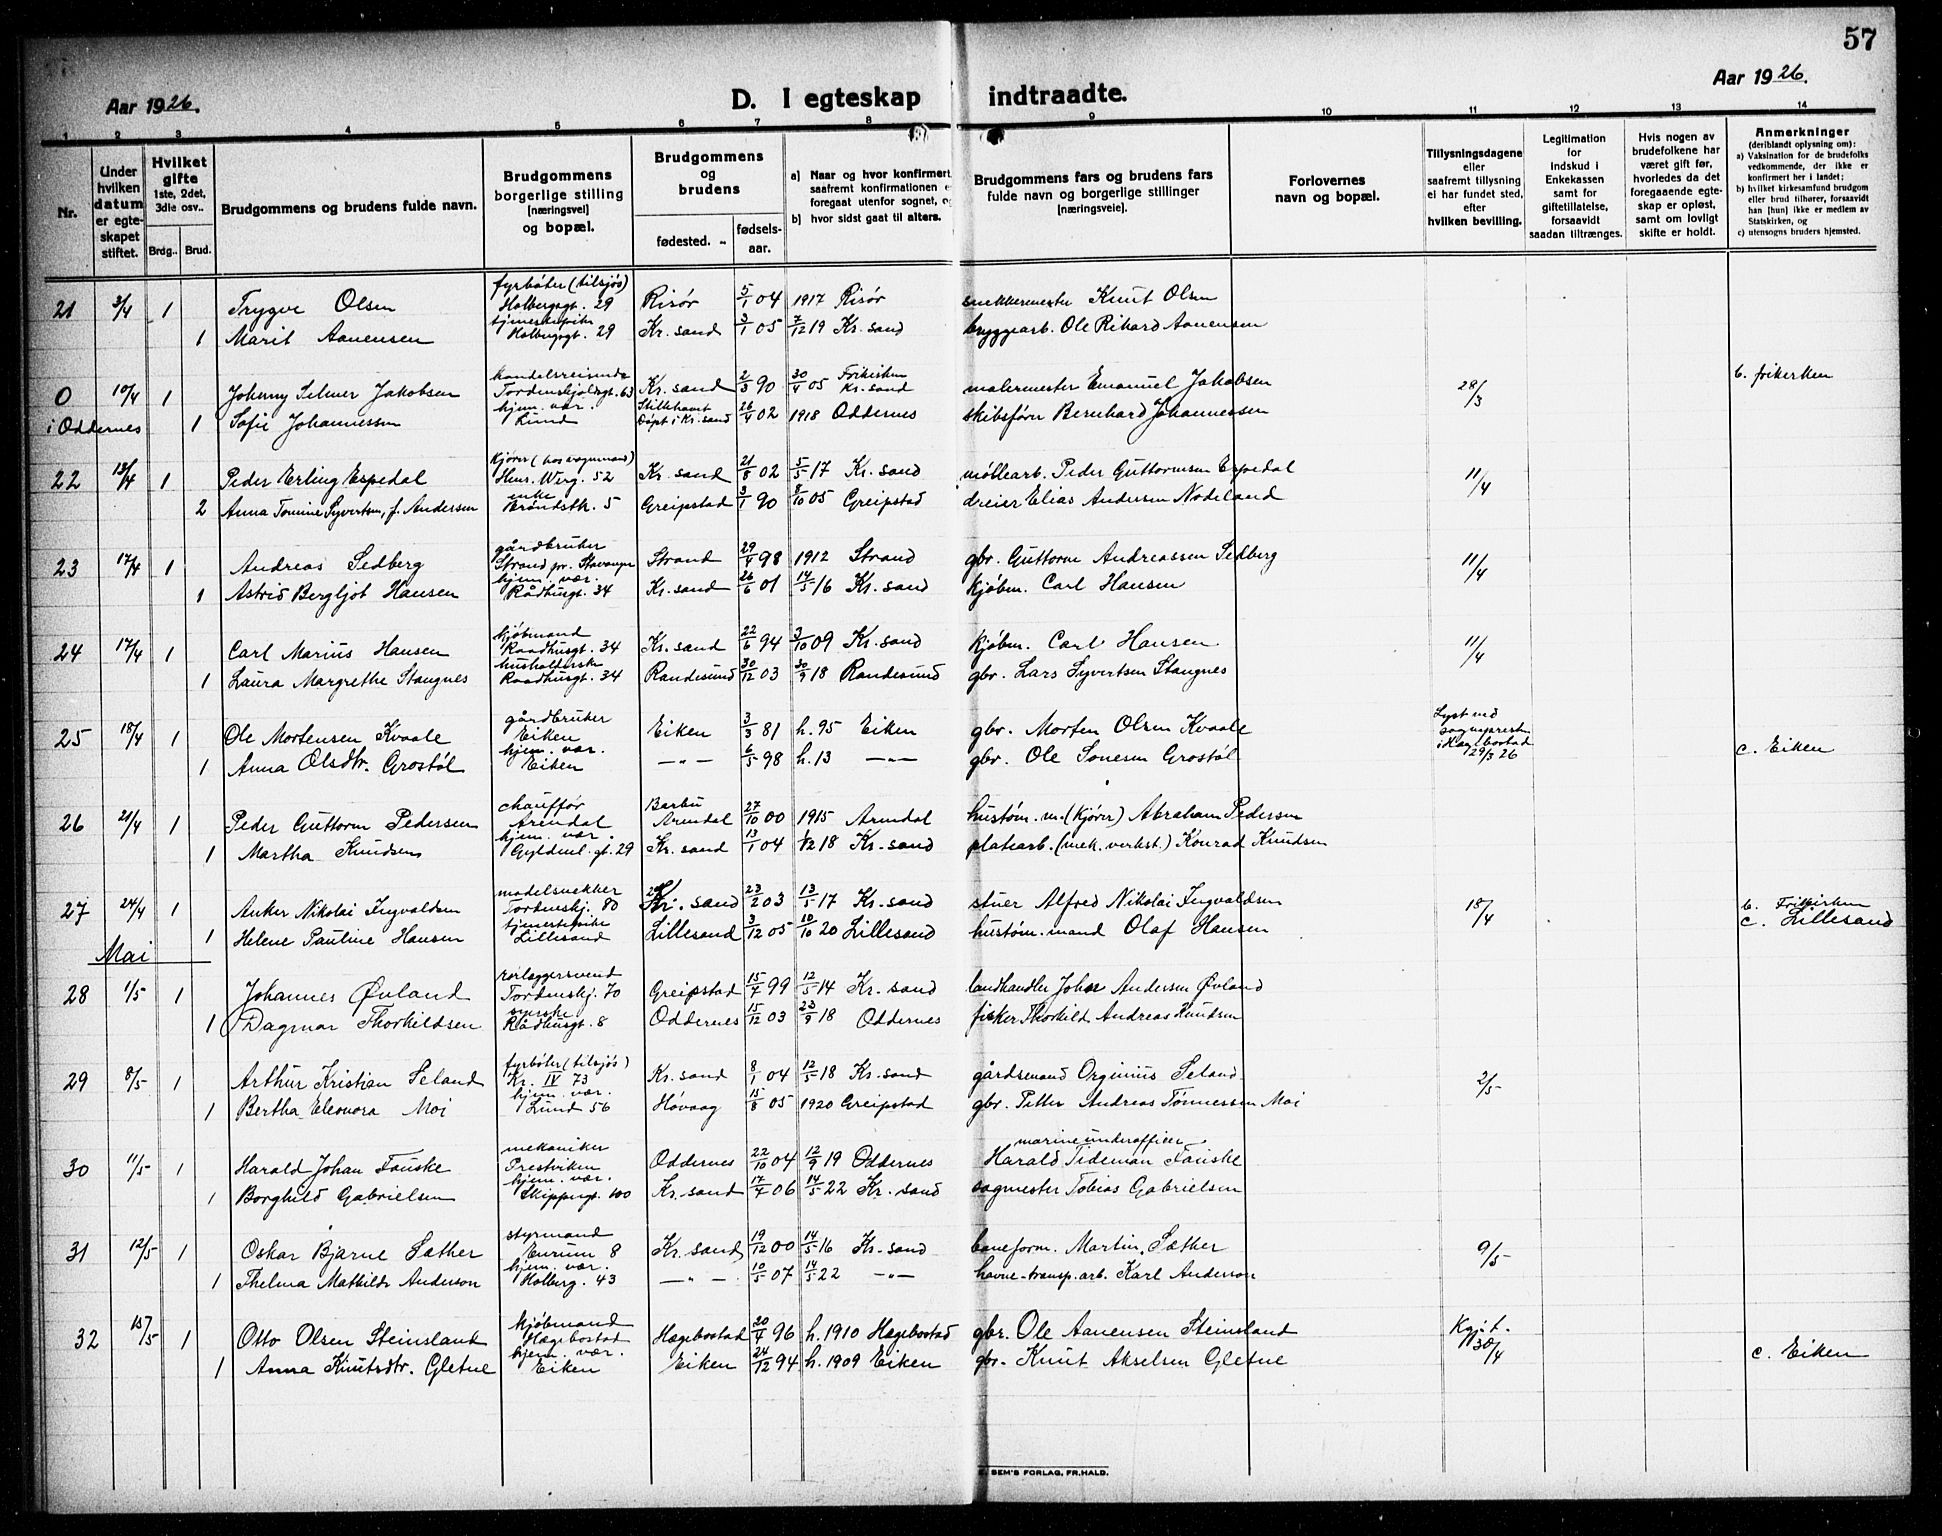 57
Aar 1926.
D. I egteskap indtraadte.
Aar 1926.
1 2 3 4 5 6 7 8 9 10 11 12 13 14
Nr.
Under hvilken datum er egteskapet stiftet.
Hvilket gifte 1ste, 2det, 3die osv..
Brdg.. Brud.
Brudgommens og brudens fulde navn.
Brudgommens borgerlige stilling [næringsvei] og bopæl.
Brudgommens og brudens
fødested. fødselsaar.
a) Naar og hvor konfirmert,
saafremt konfirmationen e
foregaat utenfor sognet, og
b) hvor sidst gaat til alters.
Brudgommens fars og brudens fars fulde navn og borgerlige stillinger [næringsveie].
Forlovernes navn og bopæl.
Tillysningsdagene eller saafremt tillysning ei har fundet sted, efter hvilken bevilling.
Legitimation for Indskud i Enkekassen samt for giftetillatelse, forsaavidt saadan tiltrænges.
Hvis nogen av brudefolkene har været gift før, hvorledes da det foregaaende egteskap er opløst, samt om lovligt skifte er holdt.
Anmerkninger
(deriblandt oplysning om):
a) Vaksination for de brudefolks vedkommende, der ikke er konfirmert her i landet;
b) hvilket kirkesamfund brudgom eller brud tilhører, forsaavidt han [hun] ikke er medlem av Statskirken, og
c) utensogns bruders hjemsted.
21 3/4 1 Trygve Olsen fyrbøter (tilsjøs) Holbergsgt. 29 Risør 5/1 04 1917 Risør snekkermester Knut Olsen
1 Marit Aanensen tjenestepike Holbergsgt. 29 Kr. sand 3/1 05 7/12 19 Kr. sand bryggearb. Ole Rikard Aanensen
0 10/4 1 Johnny Selmer Jakobsen handelsreisende Tordenskjoldsgt. 63 Kr. sand 2/3 90 30/4 05 Frikirken Kr. sand malermester Emanuel Jakobsen 28/3 b. frikirken
i Oddernes 1 Sofie Johannessen hjem. vær. Lund Døpt i Kr. sand 26/4 02 1918 Oddernes skibsfører Bernhard Johannessen
22 13/4 1 Peder Erling Espedal kjører (hos vognmand) Henr. Werg. 52 Kr. sand 21/8 02 5/5 17 Kr. sand møllearb. Peder Guttormsen Espedal 11/4
2 Anna Tomine Syvertsen, f. Andersen enke Brøndstr. 5 Greipstad 3/1 90 8/10 05 Greipstad dreier Elias Andersen Nodeland
23 17/4 1 Andreas Sedberg gårdbruker Strand pr. Stavanger Strand 29/4 98 1912 Strand gbr. Guttorm Andreassen Sedberg 11/4
1 Astrid Bergljot Hansen hjem. vær. Rådhusgt. 34 Kr. sand 26/6 01 14/5 16 Kr. sand kjøbm. Carl Hansen
24 17/4 1 Carl Marius Hansen kjøbmand Raadhusgt. 34 Kr. sand 22/6 94 3/10 09 Kr. sand kjøbm. Carl Hansen 11/4
1 Laura Margrethe Stangnes husholderske Raadhusgt. 34 Randesund 30/12 03 30/9 18 Randesund gbr. Lars Syvertsen Stangnes
25 18/4 1 Ole Mortensen Kvaale gårdbruker Eiken Eiken 3/3 81 h. 95 Eiken gbr. Morten Olsen Kvaale Lyst ved sognepresten i Hægebostad 29/3 26
1 Anna Olsdtr. Grostøl hjem. vær. Eiken —„— 6/5 98 h. 13 —„— gbr. Ole Sonesen Grostøl c. Eiken
26 21/4 1 Peder Guttorm Pedersen chauffør Arendal Barbu Arendal 27/10 00 1915 Arendal hustøm. m. (kjører) Abraham Pedersen
1 Martha Knudsen hjem. vær. Gyldenl. gt. 29 Kr. sand 13/1 04 1/12 18 Kr. sand platearb. (mek. verkst.) Konrad Knudsen
27 24/4 1 Anker Nikolai Ingvaldsen modelsnekker Tordenskj. 80 Kr. sand 23/2 03 13/5 17 Kr. sand stuer Alfred Nikolai Ingvaldsen 18/4 b. Frikirken
1 Helene Pauline Hansen tjenestepike Lillesand Lillesand 3/12 05 10/10 20 Lillesand hustøm. mand Olaf Hansen c. Lillesand
Mai
28 1/5 1 Johannes Øvland rørlæggersvend Tordenskj. 70 Greipstad 15/7 99 12/5 14 Kr. sand landhandler Johan Andersen Øvland
1 Dagmar Thorkildsen syerske Rådhusgt. 8 Oddernes 15/12 03 23/9 18 Oddernes fisker Thorkild Andreas Knudsen
29 8/5 1 Arthur Kristian Seland fyrbøter (tilsjøs) Kr. IV 73 Kr. sand 8/1 04 12/5 18 Kr. sand gårdsmand Orginius Seland 2/5
1 Bertha Eleonora Moi hjem. vær. Lund 56 Høvaag 15/8 05 1920 Greipstad gbr. Petter Andreas Tønnessen Moi
30 11/5 1 Harald Johan Fauske mekaniker Prestviken Oddernes 22/10 04 12/9 19 Oddernes marineunderofficer Harald Tideman Fauske
1 Borghild Gabrielsen hjem. vær. Skippergt. 100 Kr. sand 17/4 06 14/5 22 Kr. sand sagmester Tobias Gabrielsen
31 12/5 1 Oskar Bjarne Sæther styrmand Enrum 8 Kr. sand 19/12 00 14/5 16 Kr. sand baneform. Martin Sæther 9/5
1 Thelma Mathilde Anderson hjem. vær. Holberg. 43 —„— 10/5 07 14/5 22 —„— havne-transp. arb. Karl Anderson
32 15/5 1 Otto Olsen Steinsland kjøbmand Hægebostad Hægebostad 20/4 96 h. 1910 Hægebostad gbr. Ole Aanensen Steinsland 30/4
1 Anna Knutsdtr. Gletne hjem. vær. Eiken Eiken 24/12 94 h. 1909 Eiken gbr. Knut Akselsen Gletne c. Eiken
E. SEM'S FORLAG, FR.HALD.